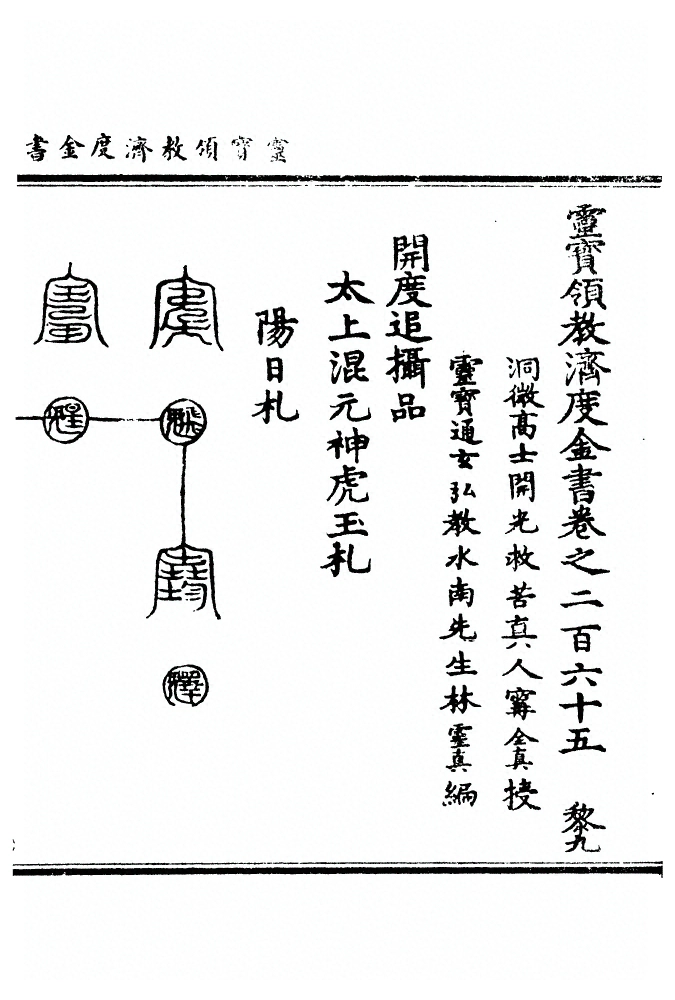 書金度濟教領寶靈
靈寶領教濟度金書卷之二百六十五 黎九
洞微高士開光救苦真人甯全真授
靈寶通玄弘教水南先生林靈真編
開度追攝品
太上混元神虎玉札
陽日札